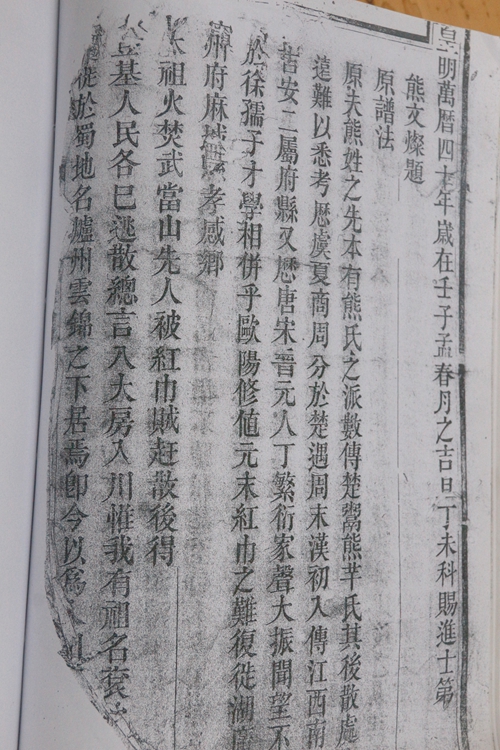 皇明萬曆四十年歲在壬子孟春月之吉旦丁未科賜進士第
熊文燦題
原譜法
原夫熊姓之先本有熊氏之派數傳楚鬻熊芊氏其後散處
遠難以悉考歷虞夏商周分於楚遇周末漢初入傳江西南
吉安二屬府縣又歷唐宋晉元人丁繁衍家聲大振聞望不
於徐孺子才學相併乎歐陽修值元末紅巾之難復徙湖
府麻城孝感鄉
太祖火焚武當山先人被紅巾賊赶散後得
基人民各已逃散總言入大房入川惟我有祖名袞
徙於蜀地名瀘州雲錦之下居焉卽今以爲